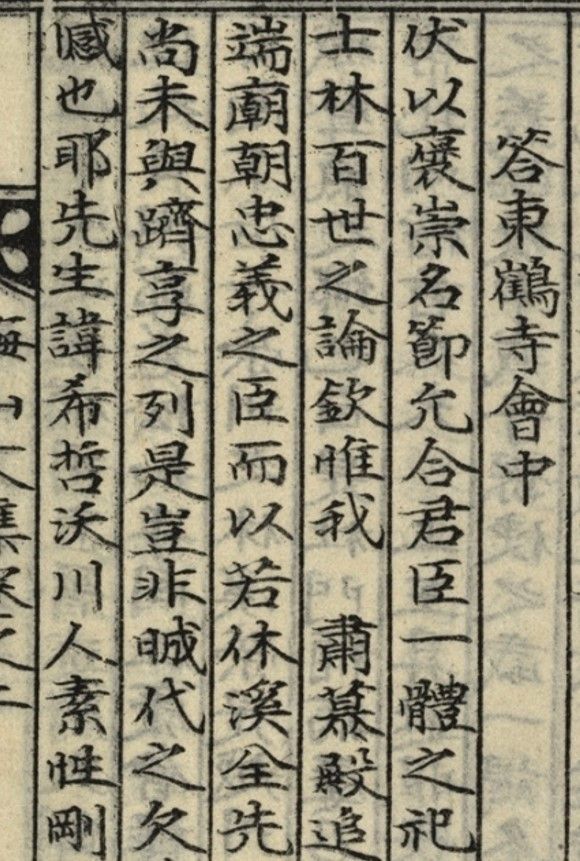 答東鶴寺會中
伏以褒崇名節允合君臣一體之祀
士林百世之論欽惟我　肅慕殿追
端廟朝忠義之臣而以若休溪全先
尚未與躋享之列是豈非晠代之欠
憾也耶先生諱希哲沃川人素性剛